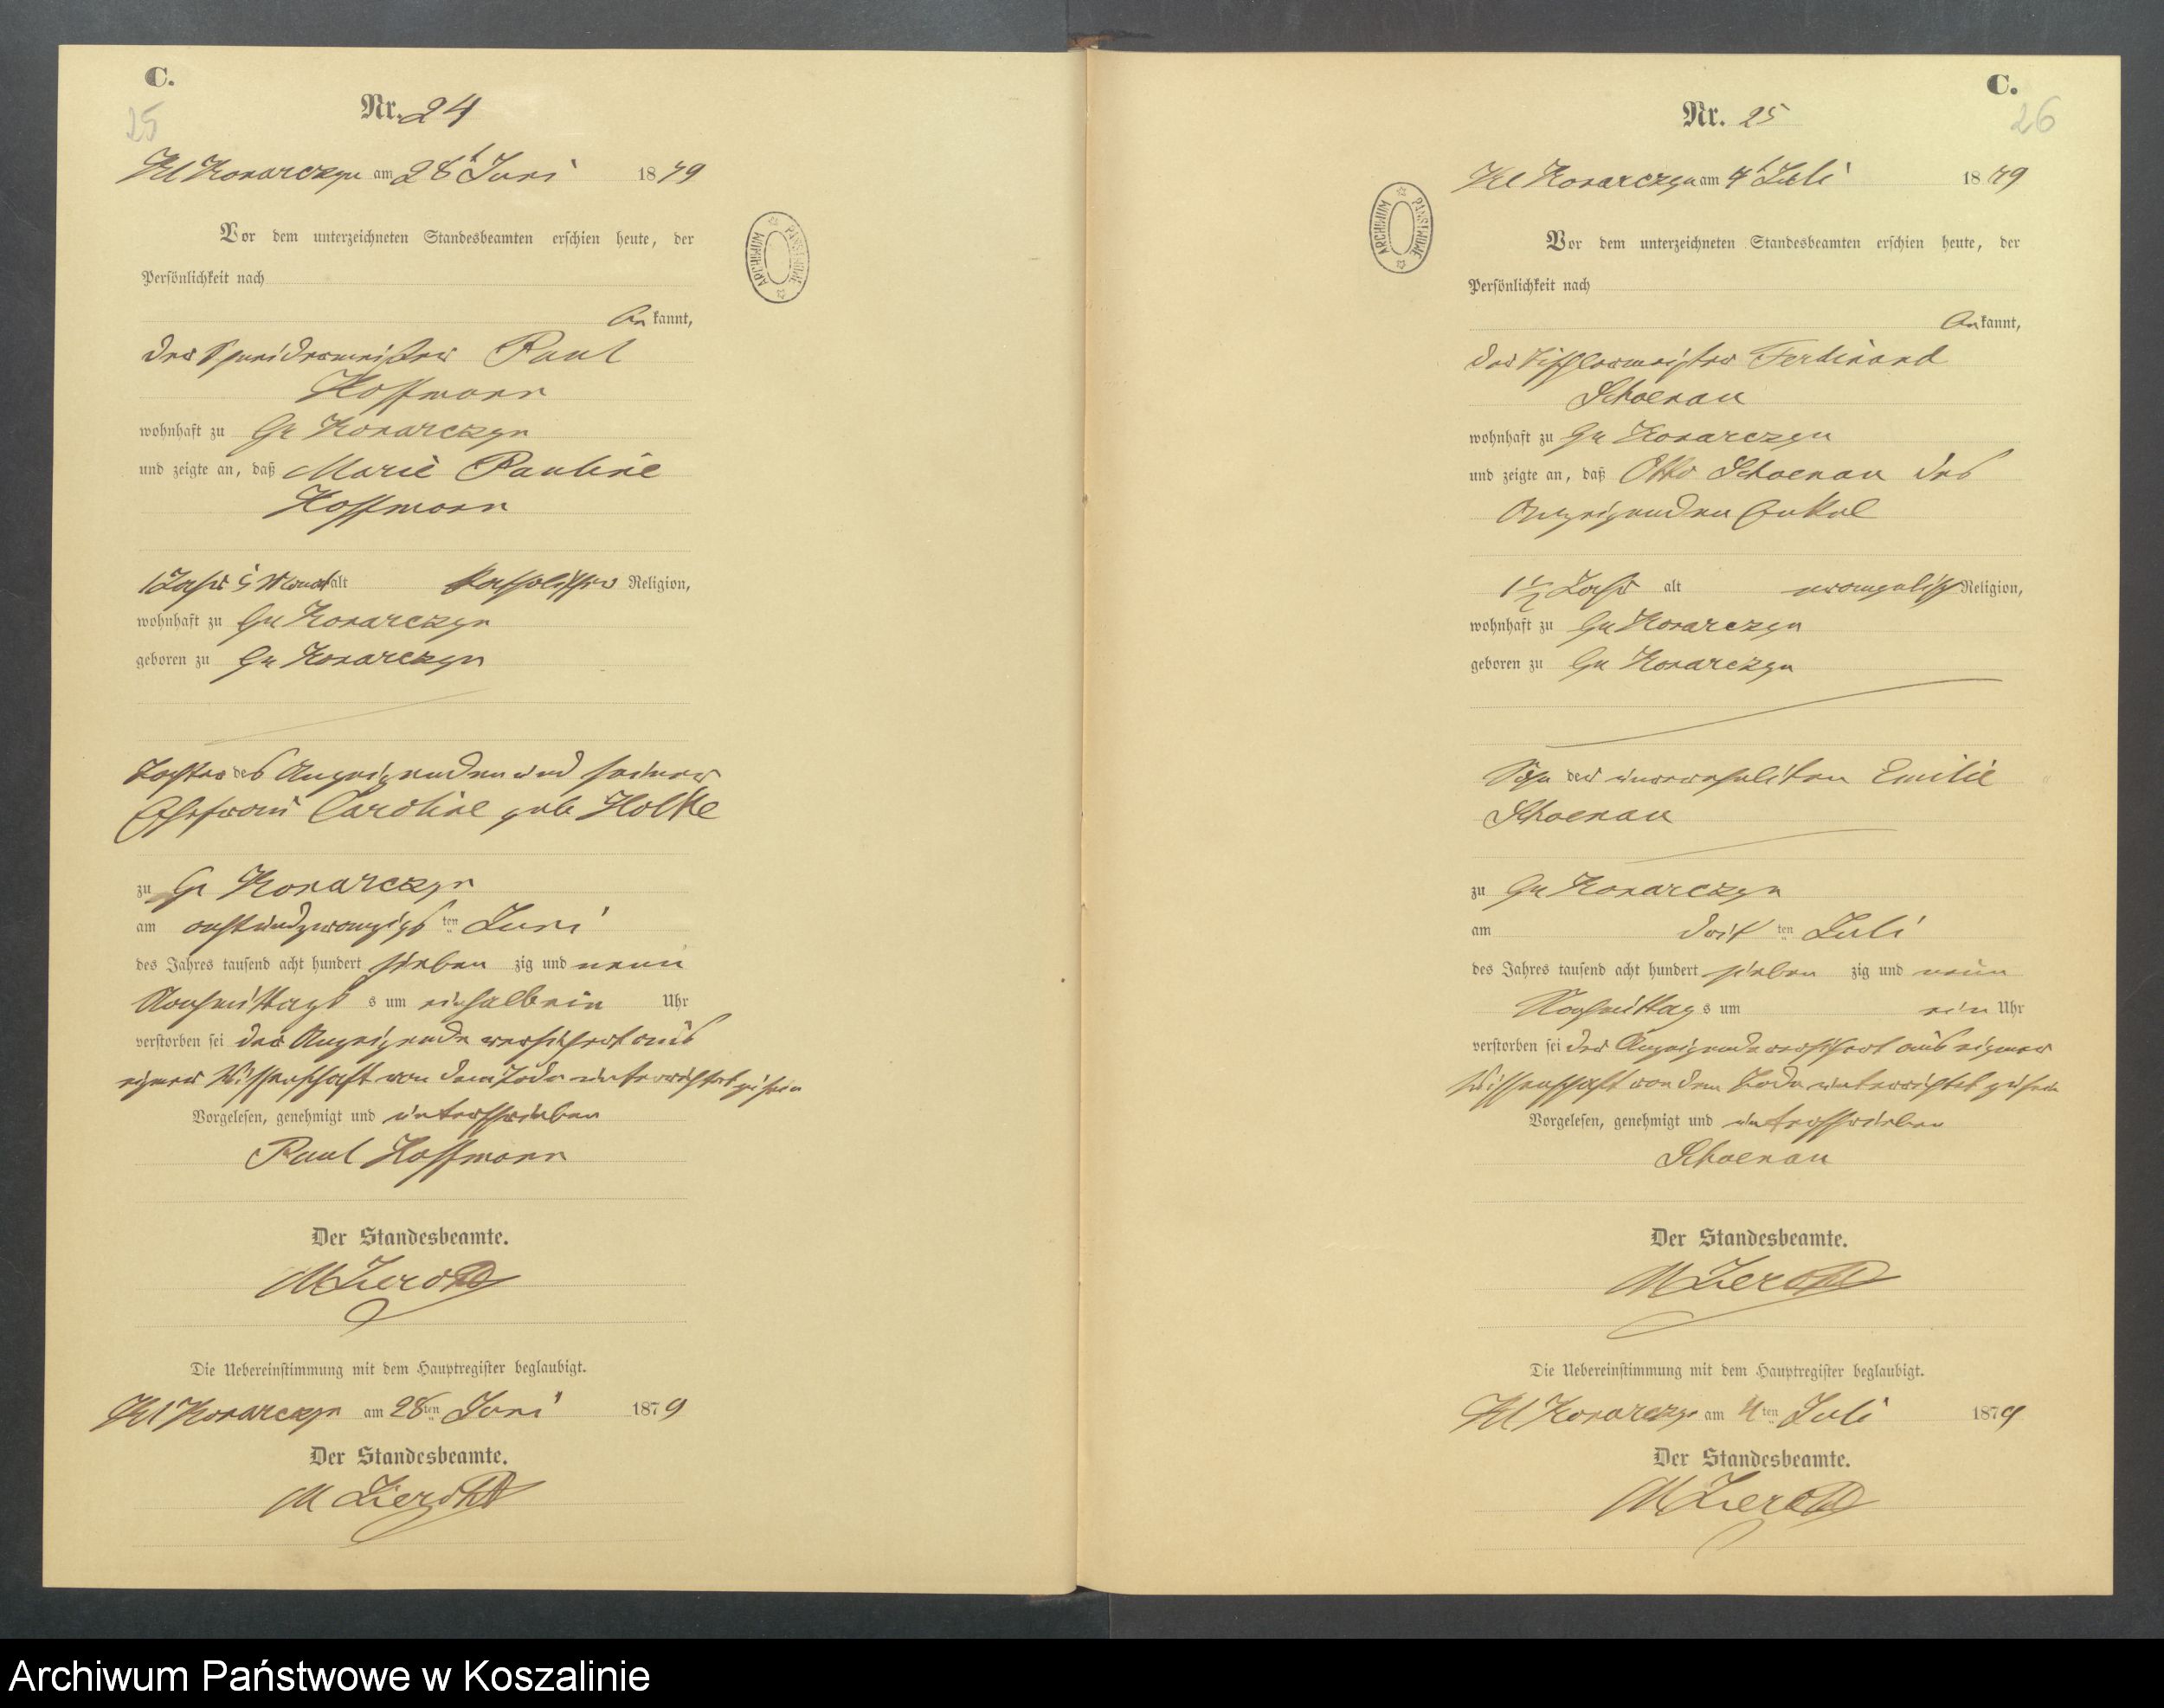 C.
25
Nr. 24
Kl Konarczyn am 28t Juni 1879
Vor dem unterzeichneten Standesbeamten erschien heute, der
Persönlichkeit nach
be kannt,
der Schneidermeister Paul
Hoffmann
wohnhaft zu Gr Konarczyn
und zeigte an, daß Marie Pauline
Hoffmann
1 Jahr 5 Monat alt katholischer Religion,
wohnhaft zu Gr Konarczyn
geboren zu Gr Konarczyn
Tochter des Anzeigenden und seiner
Ehefrau Caroline geb
zu Gr Konarczyn
am achtundzwanzigs ten Juni
des Jahres tausend acht hundert sieben zig und neun
Nachmittags s um einhalbein Uhr
verstorben sei der Anzeigende versichert aus
eigner Wissenschaft von dem Tode unterrichtet zu sein
Vorgelesen, genehmigt und unterschrieben
Paul Hoffmann
Der Standesbeamte.
Die Uebereinstimmung mit dem Hauptregister beglaubigt.
Kl Konarczyn am 28ten Juni 1879
Der Standesbeamte.
ARCHIWUM PAŃSTWOWE
C.
26
Nr. 25
Kl Konarczyn am 4t Juli 1879
Vor dem unterzeichneten Standesbeamten erschien heute, der
Persönlichkeit nach
be kannt,
der Tischlermeister Ferdinand
Schoenau
wohnhaft zu Gr Konarczyn
und zeigte an, daß Otto Schoenau des
Anzeigenden Enkel
1 1/2 Jahr alt evangelisch Religion,
wohnhaft zu Gr Konarczyn
geboren zu Gr Konarczyn
Sohn der unverehelichten Emilie
Schoenau
zu Gr Konarczyn
am drit ten Juli
des Jahres tausend acht hundert sieben zig und neun
Nachmittag s um ein Uhr
verstorben sei der Anzeigende versichert aus eigner
Wissenschaft von dem Tode unterrichtet zu sein
Vorgelesen, genehmigt und unterschrieben
Schoenau
Der Standesbeamte.
Die Uebereinstimmung mit dem Hauptregister beglaubigt.
Kl Konarczyn am 4ten Juli 1879
Der Standesbeamte.
ARCHIWUM PAŃSTWOWE
Archiwum Państwowe w Koszalinie